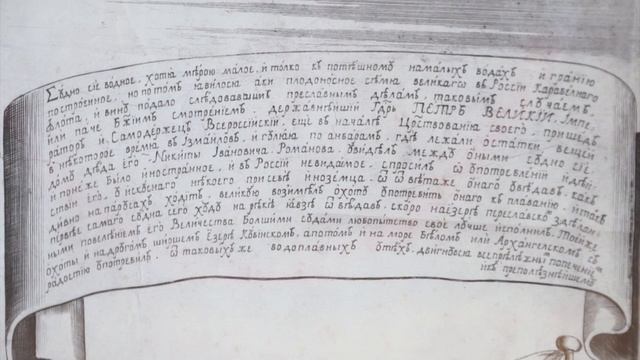 Судно сїе водное, хотя мѣрою малое, и толко къ потѣшному намалыхъ водахъ игранїю
построенное, но потомъ явилося аки плодоносное сѣмя великагѡ въ Россїи Карабелнаго
флота, и вину подало слѣдовавшимъ преславнымъ дѣламъ, таковымъ случаемъ,
или паче Бжїимъ смотренїемъ. державнѣйшїй Гдрь ПЕТРЪ ВЕЛИКЇЙ, Імпе,
раторъ и Самодержецъ Всероссїйскїй, еще въ началѣ Цствованїя своего, пришедъ
в нѣкоторое время въ Измаиловъ, и гуляя по анбарамъ, гдѣ лежали остатки вещей
дому дѣда егѡ Никиты Івановича Романова. увидѣлъ между оными судно сїе
и понеже было иностранное, и въ Россїи невидамое, спросилъ ѡ употребленїи и дѣй
ствїи егѡ, у нѣкоего присемъ иноземца. онаго увѣдавъ какъ
дивно на парусахъ ходитъ, великую возимѣлъ охоту употребить онаго къ плаванїю, итакъ
первѣе самаго судна сего ходу на рѣкѣ увѣдавъ, скоро наезерѣ переславско здѣлан
ными повеленїемъ его Величества болшими судами любопытство свое лучше исполнилъ. Тояже
охоты и надругомъ ширшемъ Езерѣ Кубинскомъ, апотомъ и на море Бѣломъ или Архангелскомъ съ
радостїю употребилъ. Ѿ таковыхъ же водоплавныхъ отѣхъ, двигнувся попеченїе
къ преполезнѣйшему